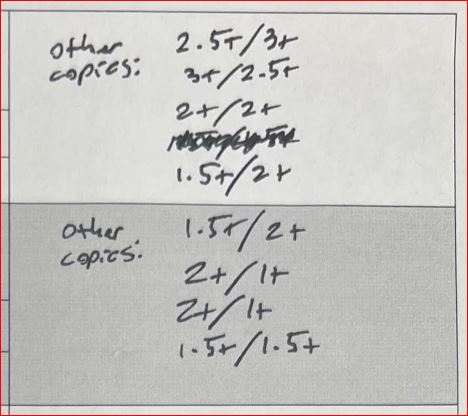 other 2.5+/3+
copies: 3+/2.5+
2+/2+
1.5+/2+
other 1.5+/2+
copies: 2+/1+
2+/1+
1.5+/1.5+